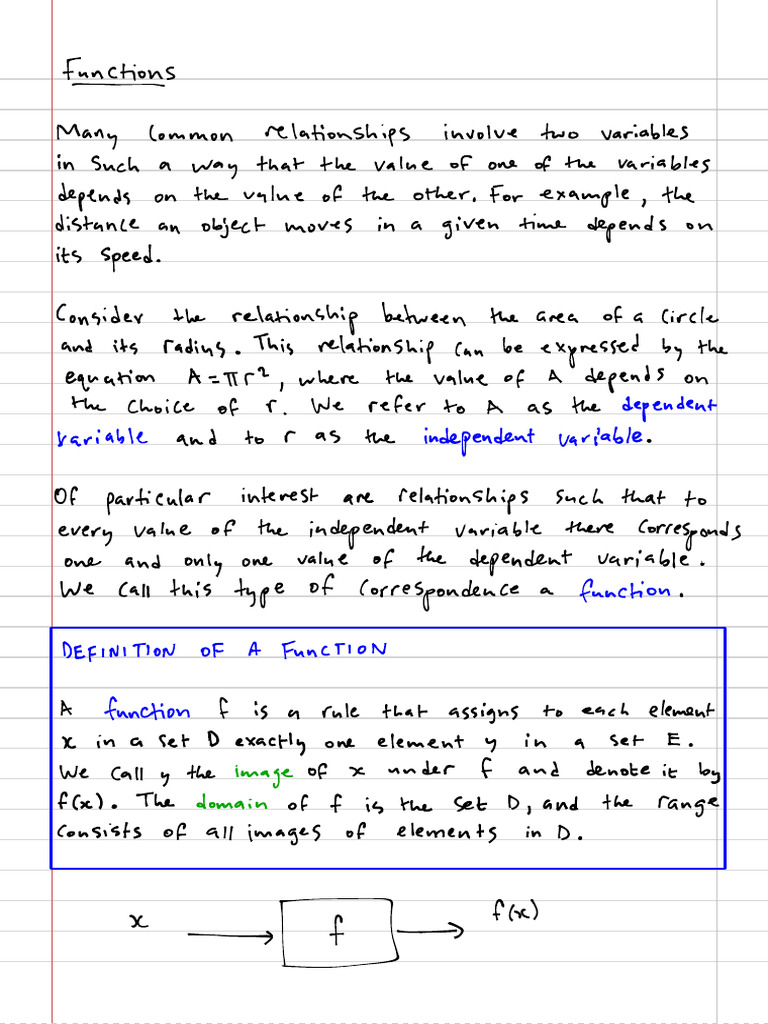 Functions
Many common relationships involve two variables
in such a way that the value of one of the variables
depends on the value of the other. For example, the
distance an object moves in a given time depends on
its speed.
Consider the relationship between the area of a circle
and its radius. This relationship can be expressed by the
equation A = πr², where the value of A depends on
the choice of r. We refer to A as the dependent
variable and to r as the independent variable.
Of particular interest are relationships such that to
every value of the independent variable there corresponds
one and only one value of the dependent variable.
We call this type of correspondence a function.
DEFINITION OF A FUNCTION
A function f is a rule that assigns to each element
x in a set D exactly one element y in a set E.
We call y the image of x under f and denote it by
f(x). The domain of f is the set D, and the range
consists of all images of elements in D.
x f f(x)